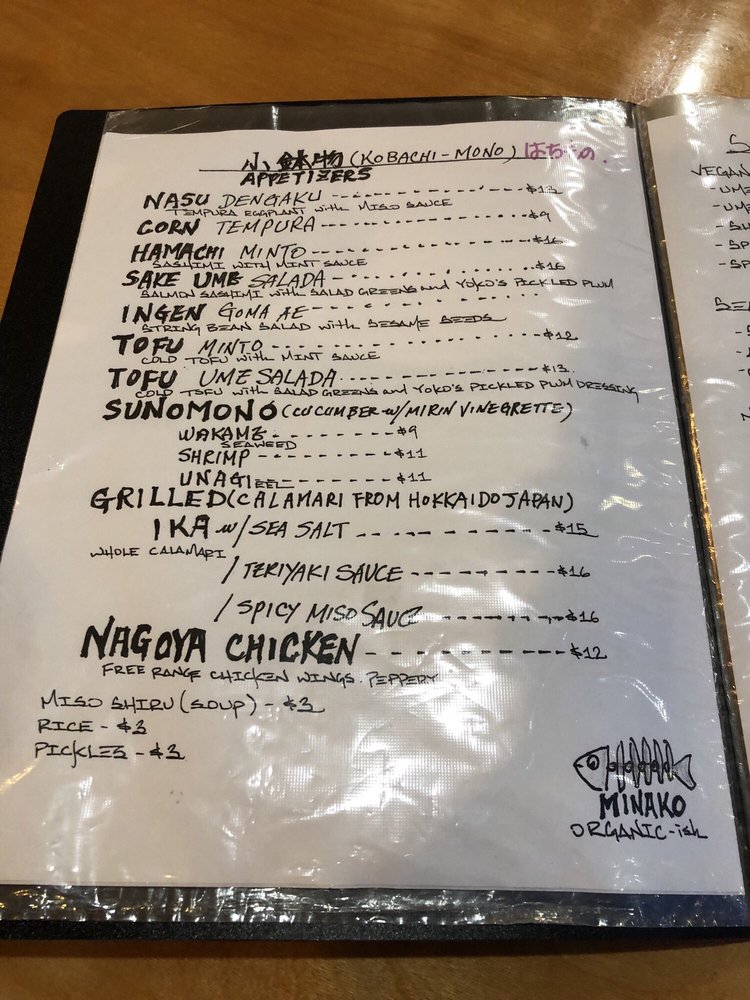 小鉢物 (KOBACHI-MONO) はちもの.
APPETIZERS
NASU DENGAKU ----------- $13
TEMPURA EGGPLANT with MISO SAUCE
CORN TEMPURA ----------- $9
HAMACHI MINTO ----------- $16
SASHIMI WITH MINT SAUCE
SAKE UME SALADA ----------- $16
SALMON SASHIMI with SALAD GREENS and YOKO'S PICKLED PLUM
INGEN GOMA AE -----------
STRING BEAN SALAD with SESAME SEEDS
TOFU MINTO ----------- $12
COLD TOFU with MINT SAUCE
TOFU UME SALADA ----------- $13
COLD TOFU with SALAD GREENS and YOKO'S PICKLED PLUM DRESSING
SUNOMONO (CUCUMBER w/ MIRIN VINEGRETTE)
WAKAME -------- $9
SEAWEED
SHRIMP -------- $11
UNAGI EEL -------- $11
GRILLED (CALAMARI FROM HOKKAIDO JAPAN)
IKA w/ SEA SALT ----------- $15
WHOLE CALAMARI
/ TERIYAKI SAUCE ----------- $16
/ SPICY MISO SAUCE ----------- $16
NAGOYA CHICKEN ----------- $12
FREE RANGE CHICKEN WINGS. PEPPERY
MISO SHIRU (SOUP) - $3
RICE - $3
PICKLES - $3
MINAKO
ORGANIC-ish
VEGAN